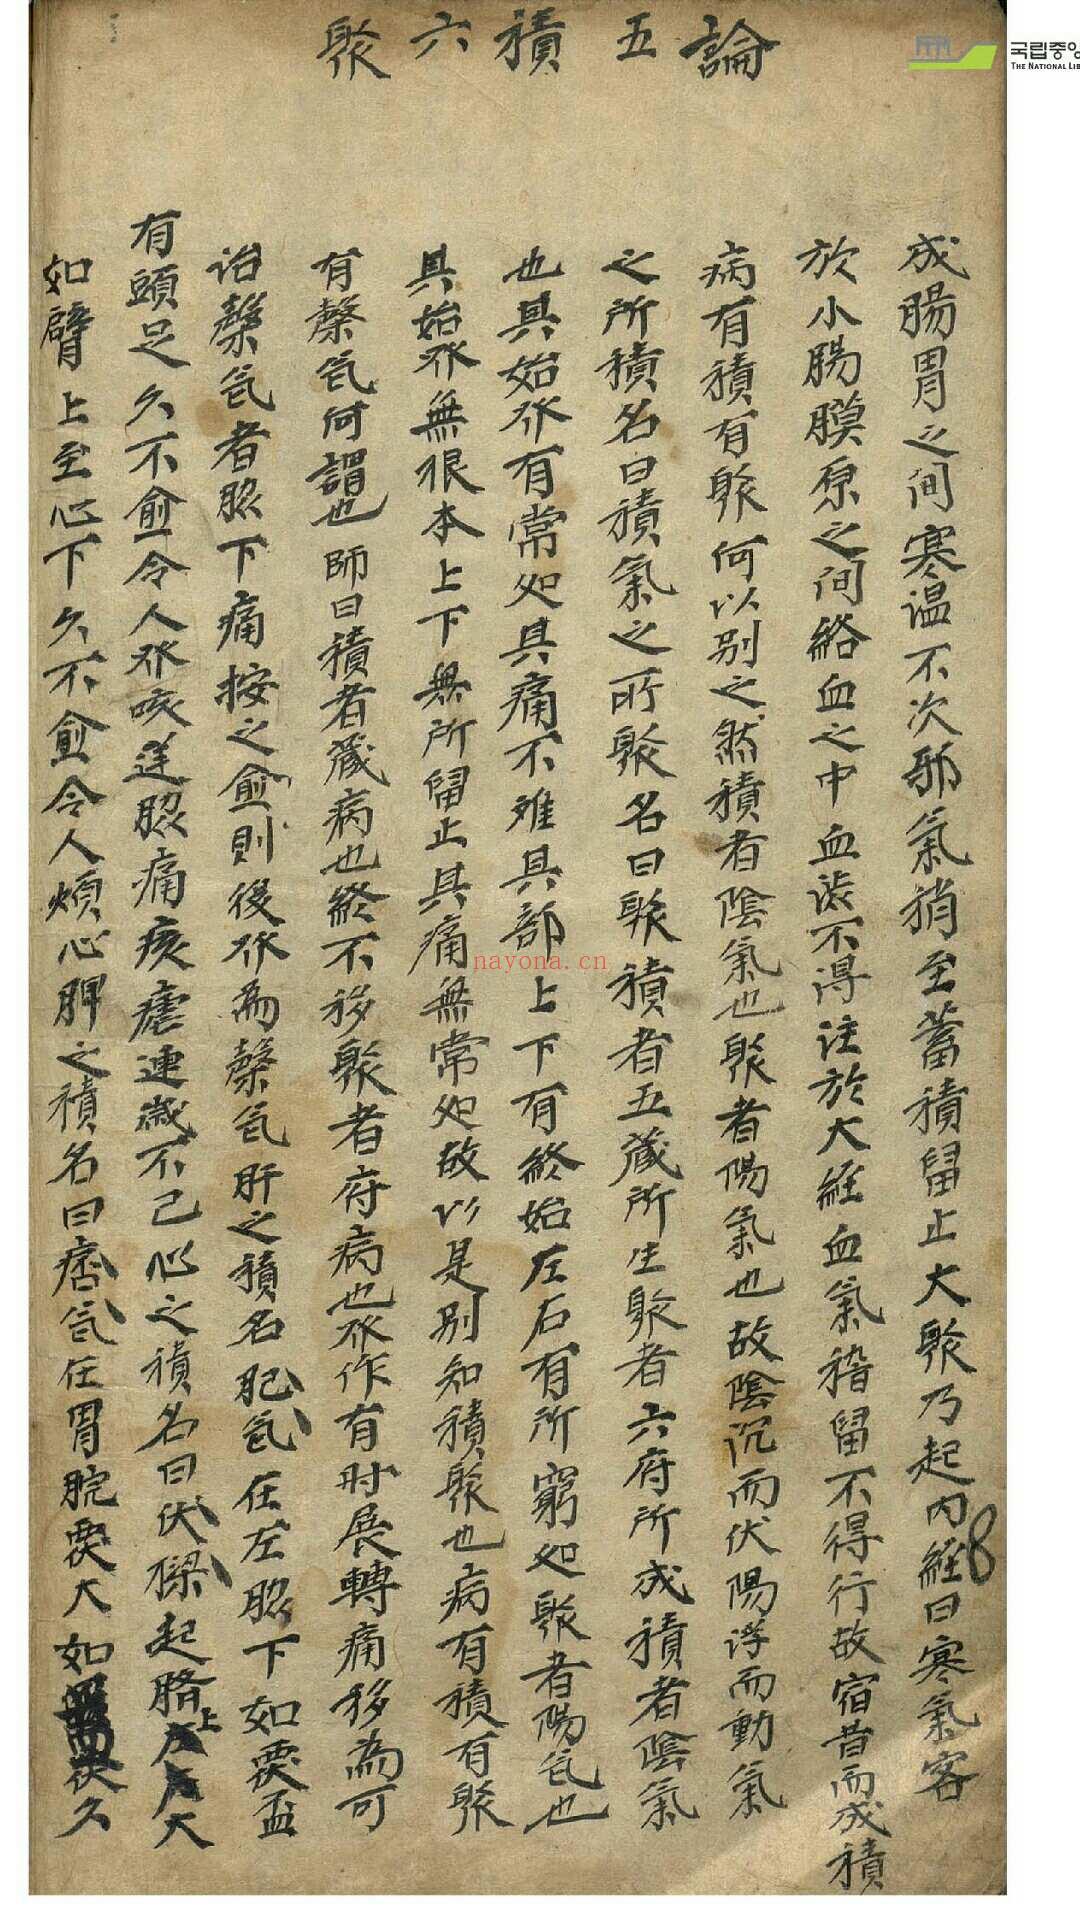 論五積六聚
국립중앙
THE NATIONAL LIB
成腸胃之間寒温不次邪氣稍至蓄積留止大聚乃起内經曰寒氣客
於小腸膜原之间絡血之中血澁不淂注於大經血氣稽留不得行故宿昔而成積
病有積有聚何以别之然積者陰氣也聚者陽氣也故陰沉而伏陽浮而動氣
之所積名曰積氣之所聚名曰聚積者五蔵所生聚者六府所成積者陰氣
也其始發有常处其痛不难其部上下有終始左右有所窮处聚者陽气也
其始發無根本上下無所留止其痛無常处故以是别知積聚也病有積有聚
有槃气何謂也師曰積者蔵病也終不移聚者府病也發作有时展轉痛移為可
治槃气者脇下痛按之愈則復發為槃气肝之積名肥气在左脇下如覆盃
有頭足久不愈令人發咳逆脇痛痎瘧連歲不已心之積名曰伏梁起臍上大
如臂上至心下久不愈令人煩心脾之積名曰痞气在胃脘覆大如久
8
nayona.cn